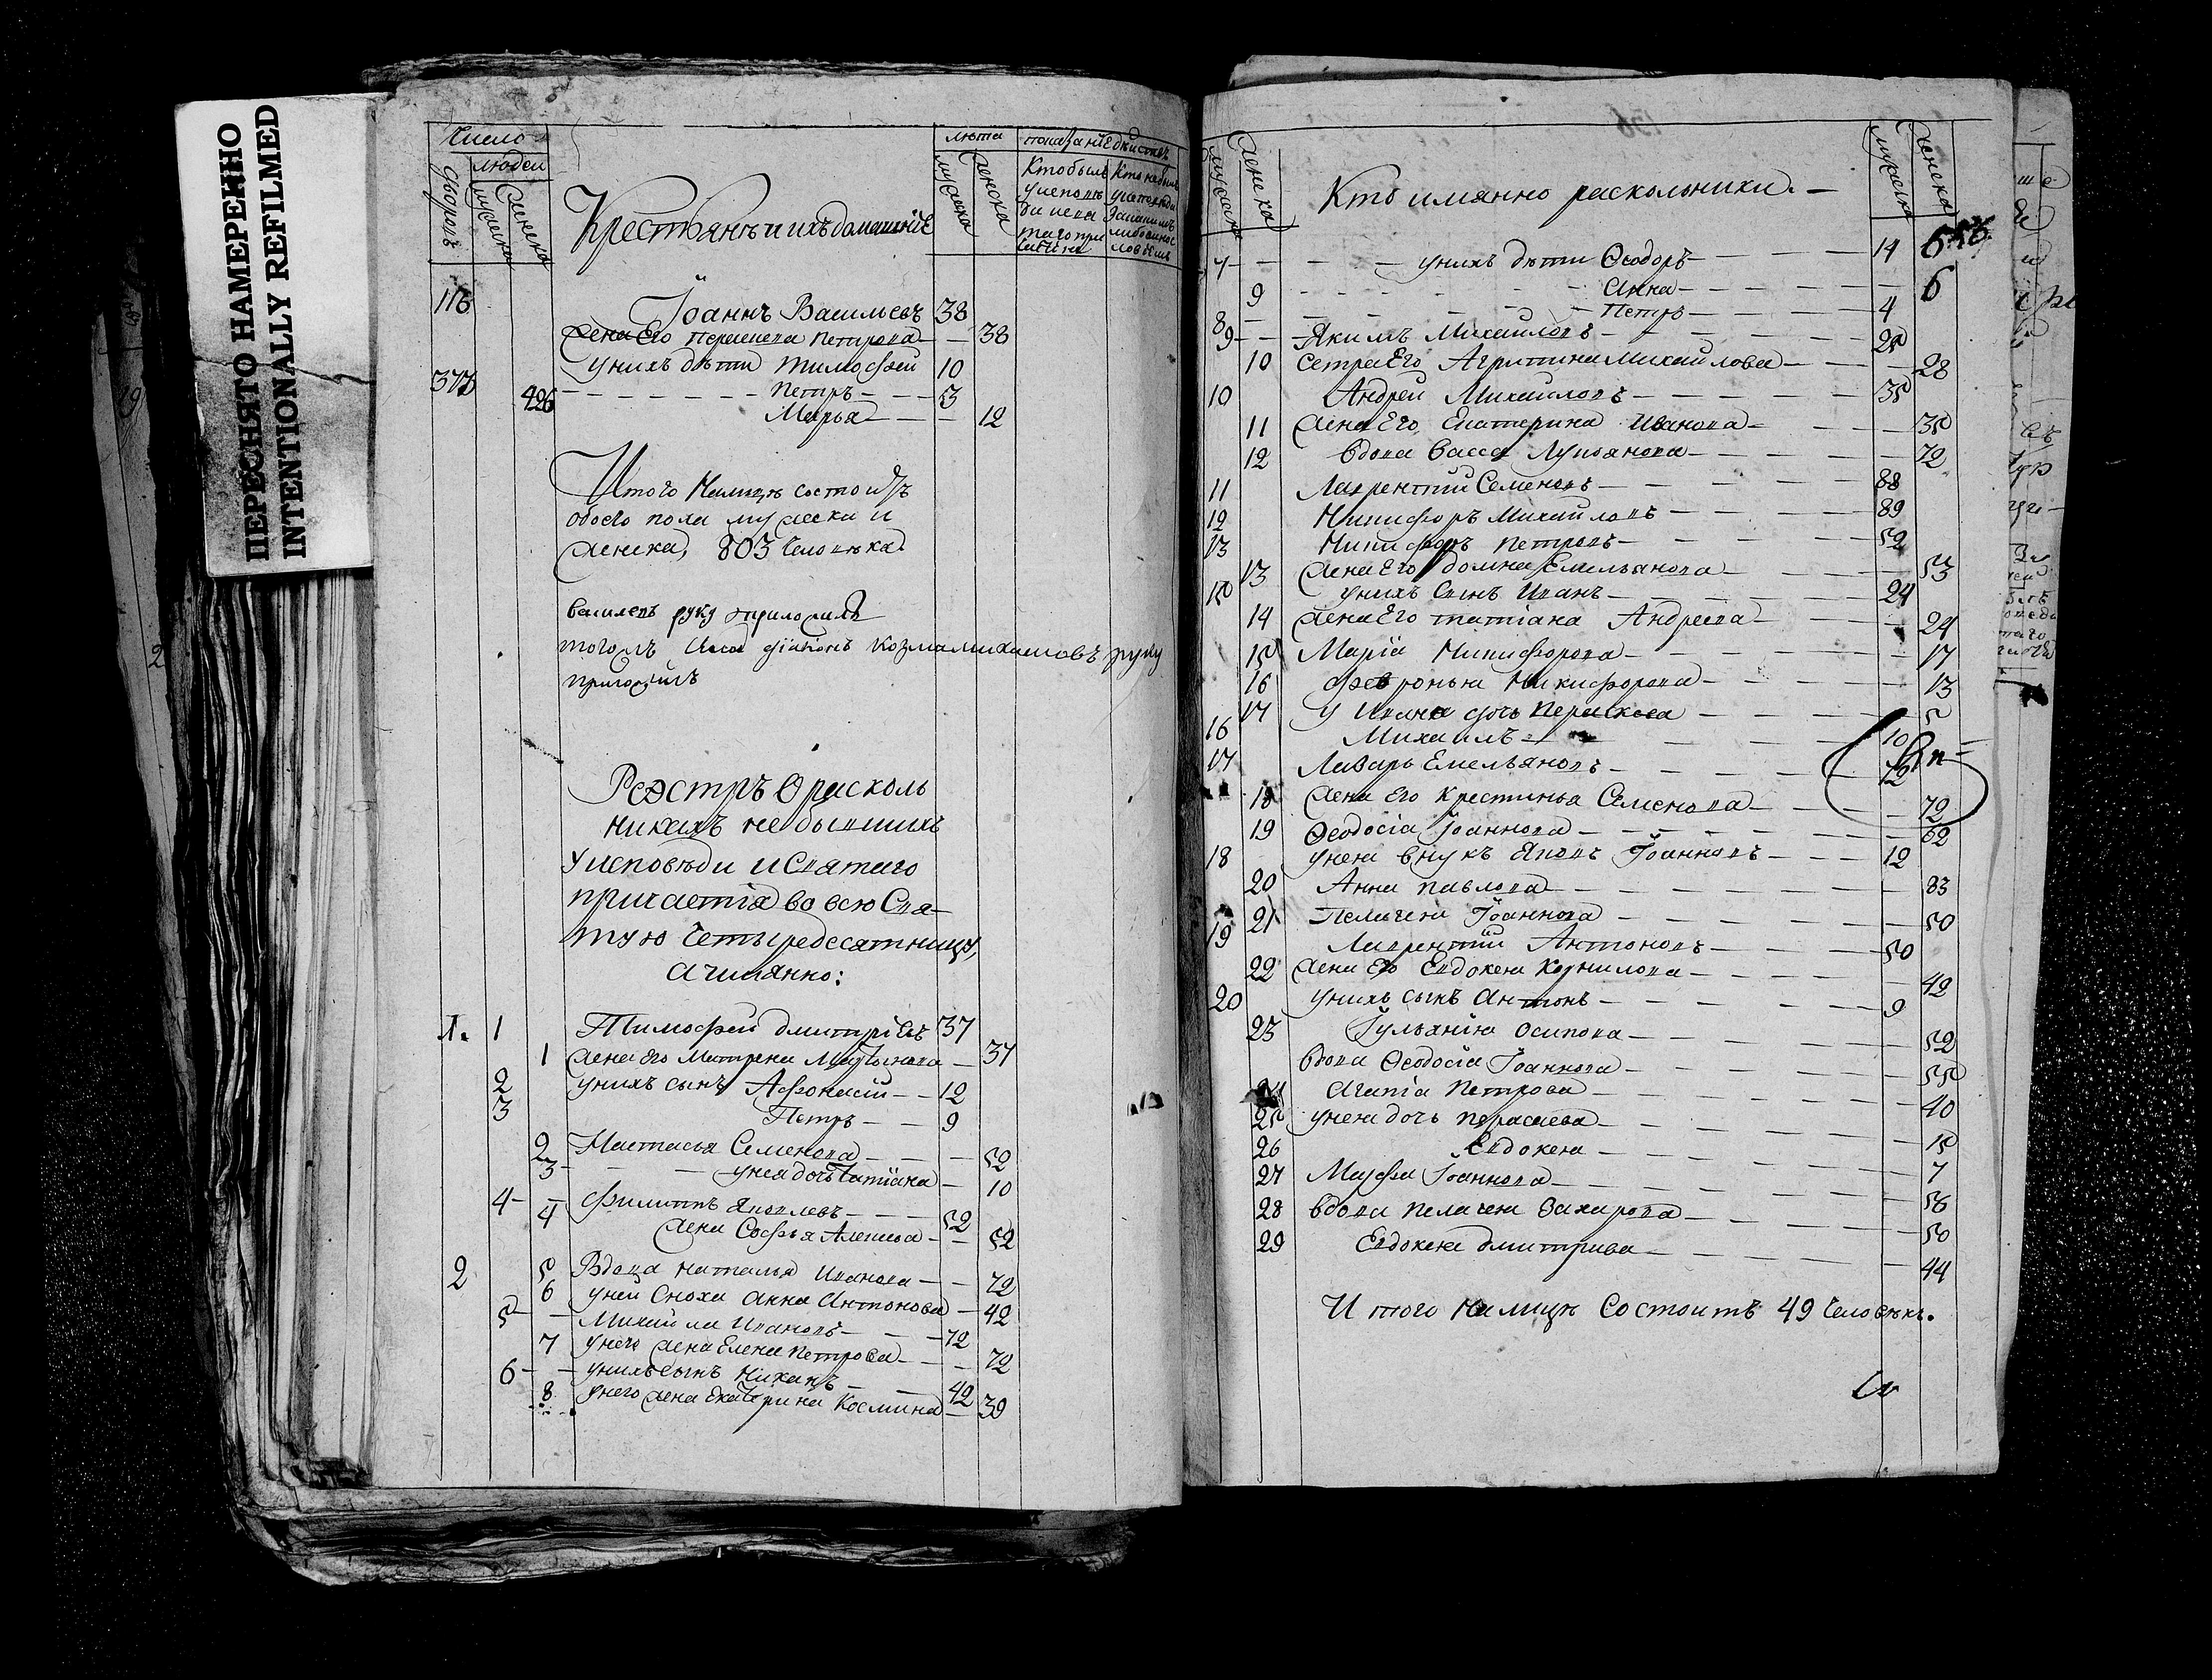 ПЕРЕСНЯТО НАМЕРЕННО
INTENTIONALLY REFILMED
Число
людей
дворовъ
мужеска
женска
Крестьянъ и ихъ домашнiе
лѣта
мужеска
женска
показанiе
Кто былъ
у исповѣ
ди и свя
таго при
Кто не былъ
116
Іоаннъ Васильевъ 38
жена Его Парасковa Петрова — 38
у нихъ дѣти Тимофей 10
377
426 Петръ 3
Марья — 12
Итого Налицѣ состоитъ
обоего пола мужеска и
женска, 803 человѣка.
Василевъ руку приложилъ
тогожъ дiаконъ Козма Михаиловъ руку
приложилъ
Реэстръ О расколь
никахъ не бывшихъ
у исповѣди и Святаго
причастiя во всю Свя-
тую Четыредесятницу,
а имянно:
1. 1 Тимофей Дмитрiевъ 37
1 жена его Матрена Мартынова — 37
2 у нихъ сынъ Афонасiй — 12
3 Петръ — 9
2 Настасья Семенова — 52
3 у нея дочь Татiана — 10
4 Филиппъ Яковлевъ — 52
4 жена Софья Алексева — 52
2 5 Вдова Наталья Иванова — 72
6 у ней сноха Анна Антонова — 42
5 Михайла Ивановъ — 72
7 у него жена Елена Петрова — 72
6 у нихъ сынъ 42
8 у него жена Екатерина Космина 39
мужеска
женска
Кто имянно раскольники. —
мужеска
женска
7 у нихъ дѣти Ѳеодоръ 14
9 Анна 6
8 Петръ 4
9 Якимъ Михаиловъ 25
10 сестра Его Агрипина Михаилова 28
10 Андрей Михаиловъ 35
11 жена Его Екатерина Иванова 35
12 вдова Васса Лукьянова 72
11 Лаврентiй Семеновъ 88
12 Никифоръ Михайловъ 89
13 Никифоръ Петровъ 52
13 жена Его Домна Емельянова 53
15 у нихъ сынъ Иванъ 24
14 жена Его Татiана Андреева 24
15 Марiя Никифорова 17
16 Февронья Никифорова 13
17 у Ивана дочь Параскева 5
16 Михаилъ 10
17 Лазарь Емельяновъ 72
18 жена Его Крестинья Семенова 72
19 Ѳеодосiа Іоаннова 62
18 у нея внукъ Яковъ Іоанновъ 12
20 Анна Павлова 83
21 Пелагея Іоаннова 50
19 Лаврентiй Антоновъ 50
22 жена Его Евдокея Корнилова 42
20 у нихъ сынъ Антонъ 9
23 Іульянiя Осипова 52
вдова Ѳеодосiа Іоаннова 55
24 Агапiа Петрова 40
25 у нея дочь Параскева 15
26 Евдокея 7
27 Марфа Іоаннова 58
28 вдова Пелагея Захарова 50
29 Евдокея Дмитрива 44
И того налицѣ Состоитъ 49 Человѣкъ.